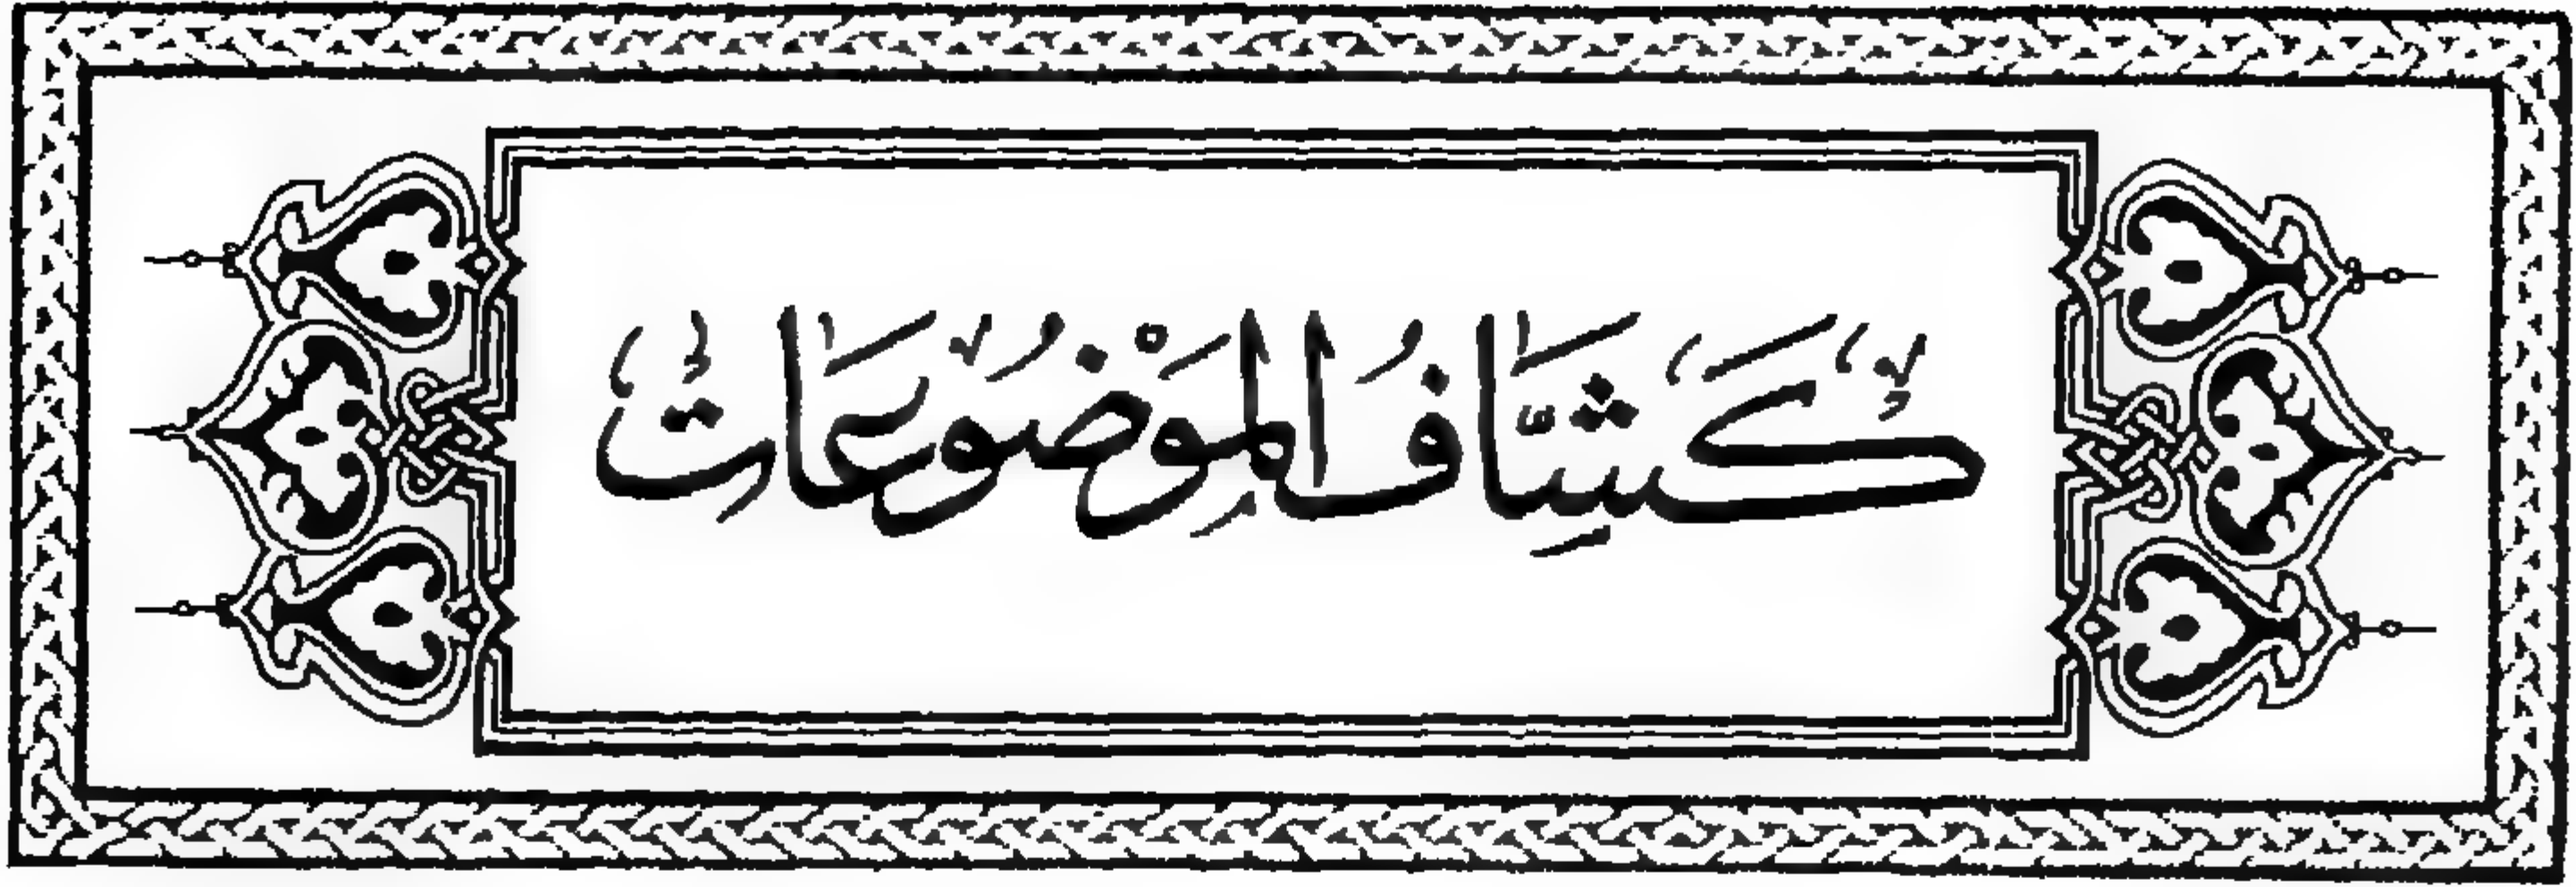 كَشَّافُ الْمَوْضُوعَاتِ